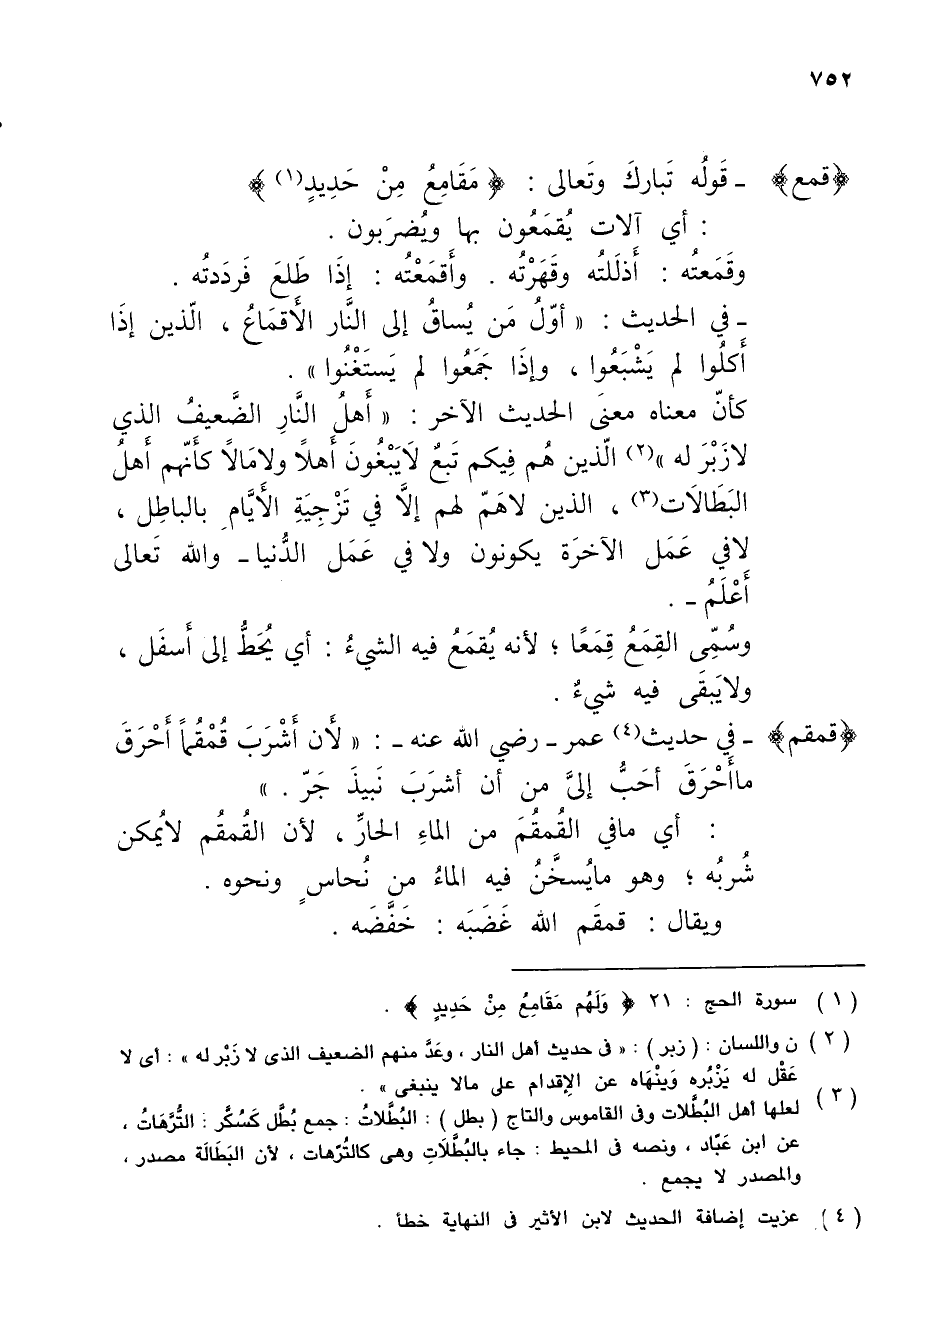 ٧٥٢
﴿قمع﴾ ـ قَولُه تَبارَكَ وتَعالى : ﴿ مَقَامِعُ مِنْ حَدِيدٍ(١) ﴾
: أي آلات يُقمَعُون بها ويُضرَبون .
وقَمَعتُه : أَذلَلتُه وقَهَرْتُه . وأَقمَعْتُه : إذَا طَلعَ فَردَدتُه .
ـ في الحديث : « أوّلُ مَن يُساقُ إلى النَّار الأَقمَاعُ ، الّذين إذَا
أَكلُوا لم يَشْبَعُوا ، وإذَا جَمَعُوا لم يَستَغْنُوا » .
كأنّ معناه معنَى الحديث الآخر : « أَهلُ النَّارِ الضَّعيفُ الذي
لازَبْرَ له »(٢) الّذين هُم فِيكم تَبعٌ لَايَبْغُونَ أَهلًا ولامَالًا كأَنّهم أَهلُ
البَطَالَات(٣) ، الذين لاهَمّ لهم إلَّا في تَزْجِيَةِ الأَيَّامِ بالباطِل ،
لافي عَمَل الآخرَة يكونون ولا في عَمَل الدُّنيا ـ والله تَعالى
أَعْلَمُ ـ .
وسُمِّى القِمَعُ قِمَعًا ؛ لأنه يُقمَعُ فيه الشيءُ : أي يُحَطُّ إلى أَسفَل ،
ولايَبقَى فيه شيءٌ .
﴿قمقم﴾ ـ في حديث(٤) عمر ـ رضي الله عنه ـ : « لأَن أَشْرَبَ قُمْقُماً أَحْرَقَ
ماأَحْرَقَ أحَبُّ إليَّ من أن أشرَبَ نَبيذَ جَرّ . »
: أي مافي القُمقُمَ من الماءِ الحارِّ ، لأن القُمقُم لايُمكن
شُربُه ؛ وهو مايُسخَّنُ فيه الماءُ من نُحاسٍ ونحوه .
ويقال : قمقَم الله غَضَبَه : خَفَّضَه .
(١) سورة الحج : ٢١ ﴿ وَلَهُم مَقَامِعُ مِنْ حَدِيدٍ ﴾ .
(٢) ن واللسان : ( زبر ) : « فى حديث أهل النار ، وعَدَّ منهم الضعيف الذى لا زَبْر له » : أى لا
عَقْل له يَزْبُره وَيَنْهَاه عن الإقدام على مالا ينبغى » .
(٣) لعلها أهل البُطَّلات وفى القاموس والتاج ( بطل ) : البُطَّلاتُ : جمع بُطَّل كَسُكَّر : التُّرَّهَاتُ ،
عن ابن عَبَّاد ، ونصه فى المحيط : جاء بالبُطَّلَاتِ وهى كالتُرّهات ، لأن البَطَالَة مصدر ،
والمصدر لا يجمع .
(٤) عزيت إضافة الحديث لابن الأثير فى النهاية خطأ .